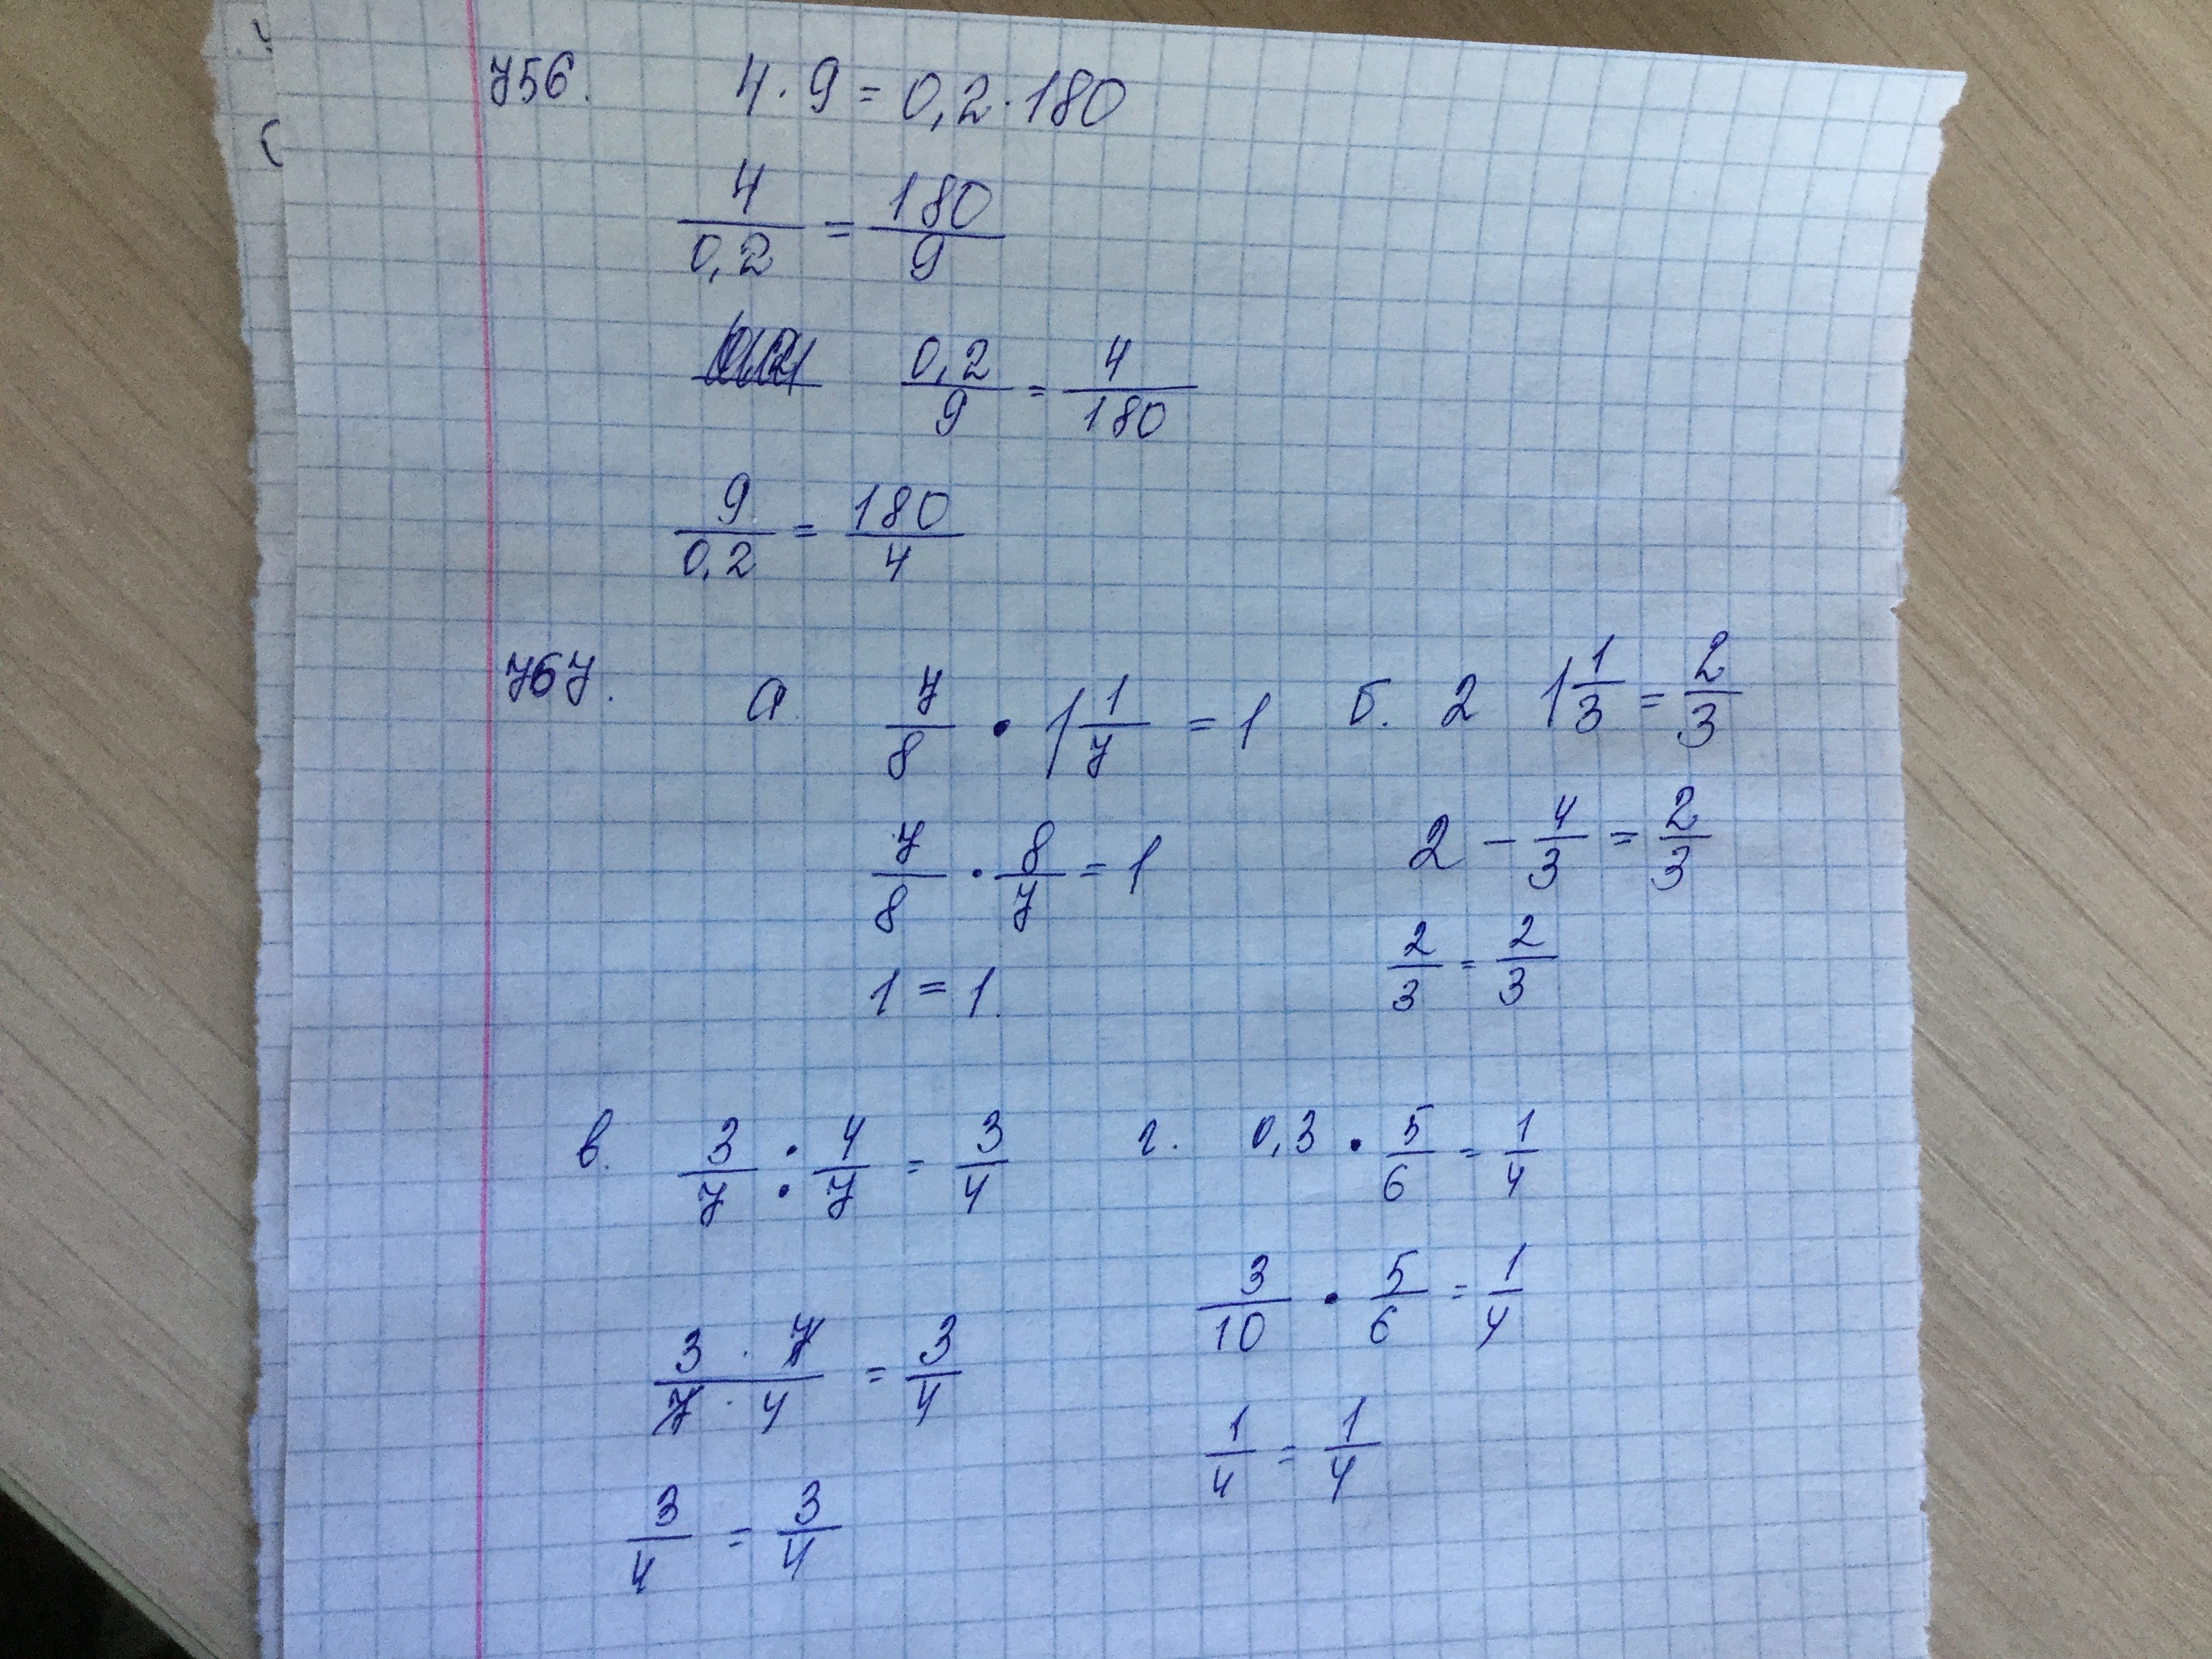 756. 4 · 9 = 0,2 · 180
4/0,2 = 180/9
0,2/9 = 4/180
9/0,2 = 180/4
767. а. 7/8 · 1 1/7 = 1
7/8 · 8/7 = 1
1 = 1.
б. 2 1 1/3 = 2/3
2 - 4/3 = 2/3
2/3 = 2/3
в. 3/7 : 4/7 = 3/4
3 · 7/7 · 4 = 3/4
3/4 = 3/4
г. 0,3 · 5/6 = 1/4
3/10 · 5/6 = 1/4
1/4 = 1/4